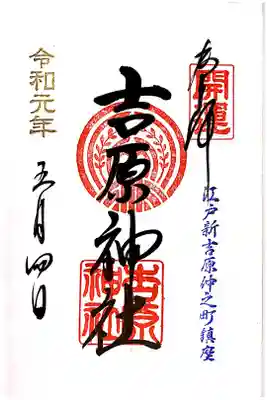 奉拝
開運
江戸新吉原仲之町鎮座
吉原神社
吉原神社
令和元年
五月四日